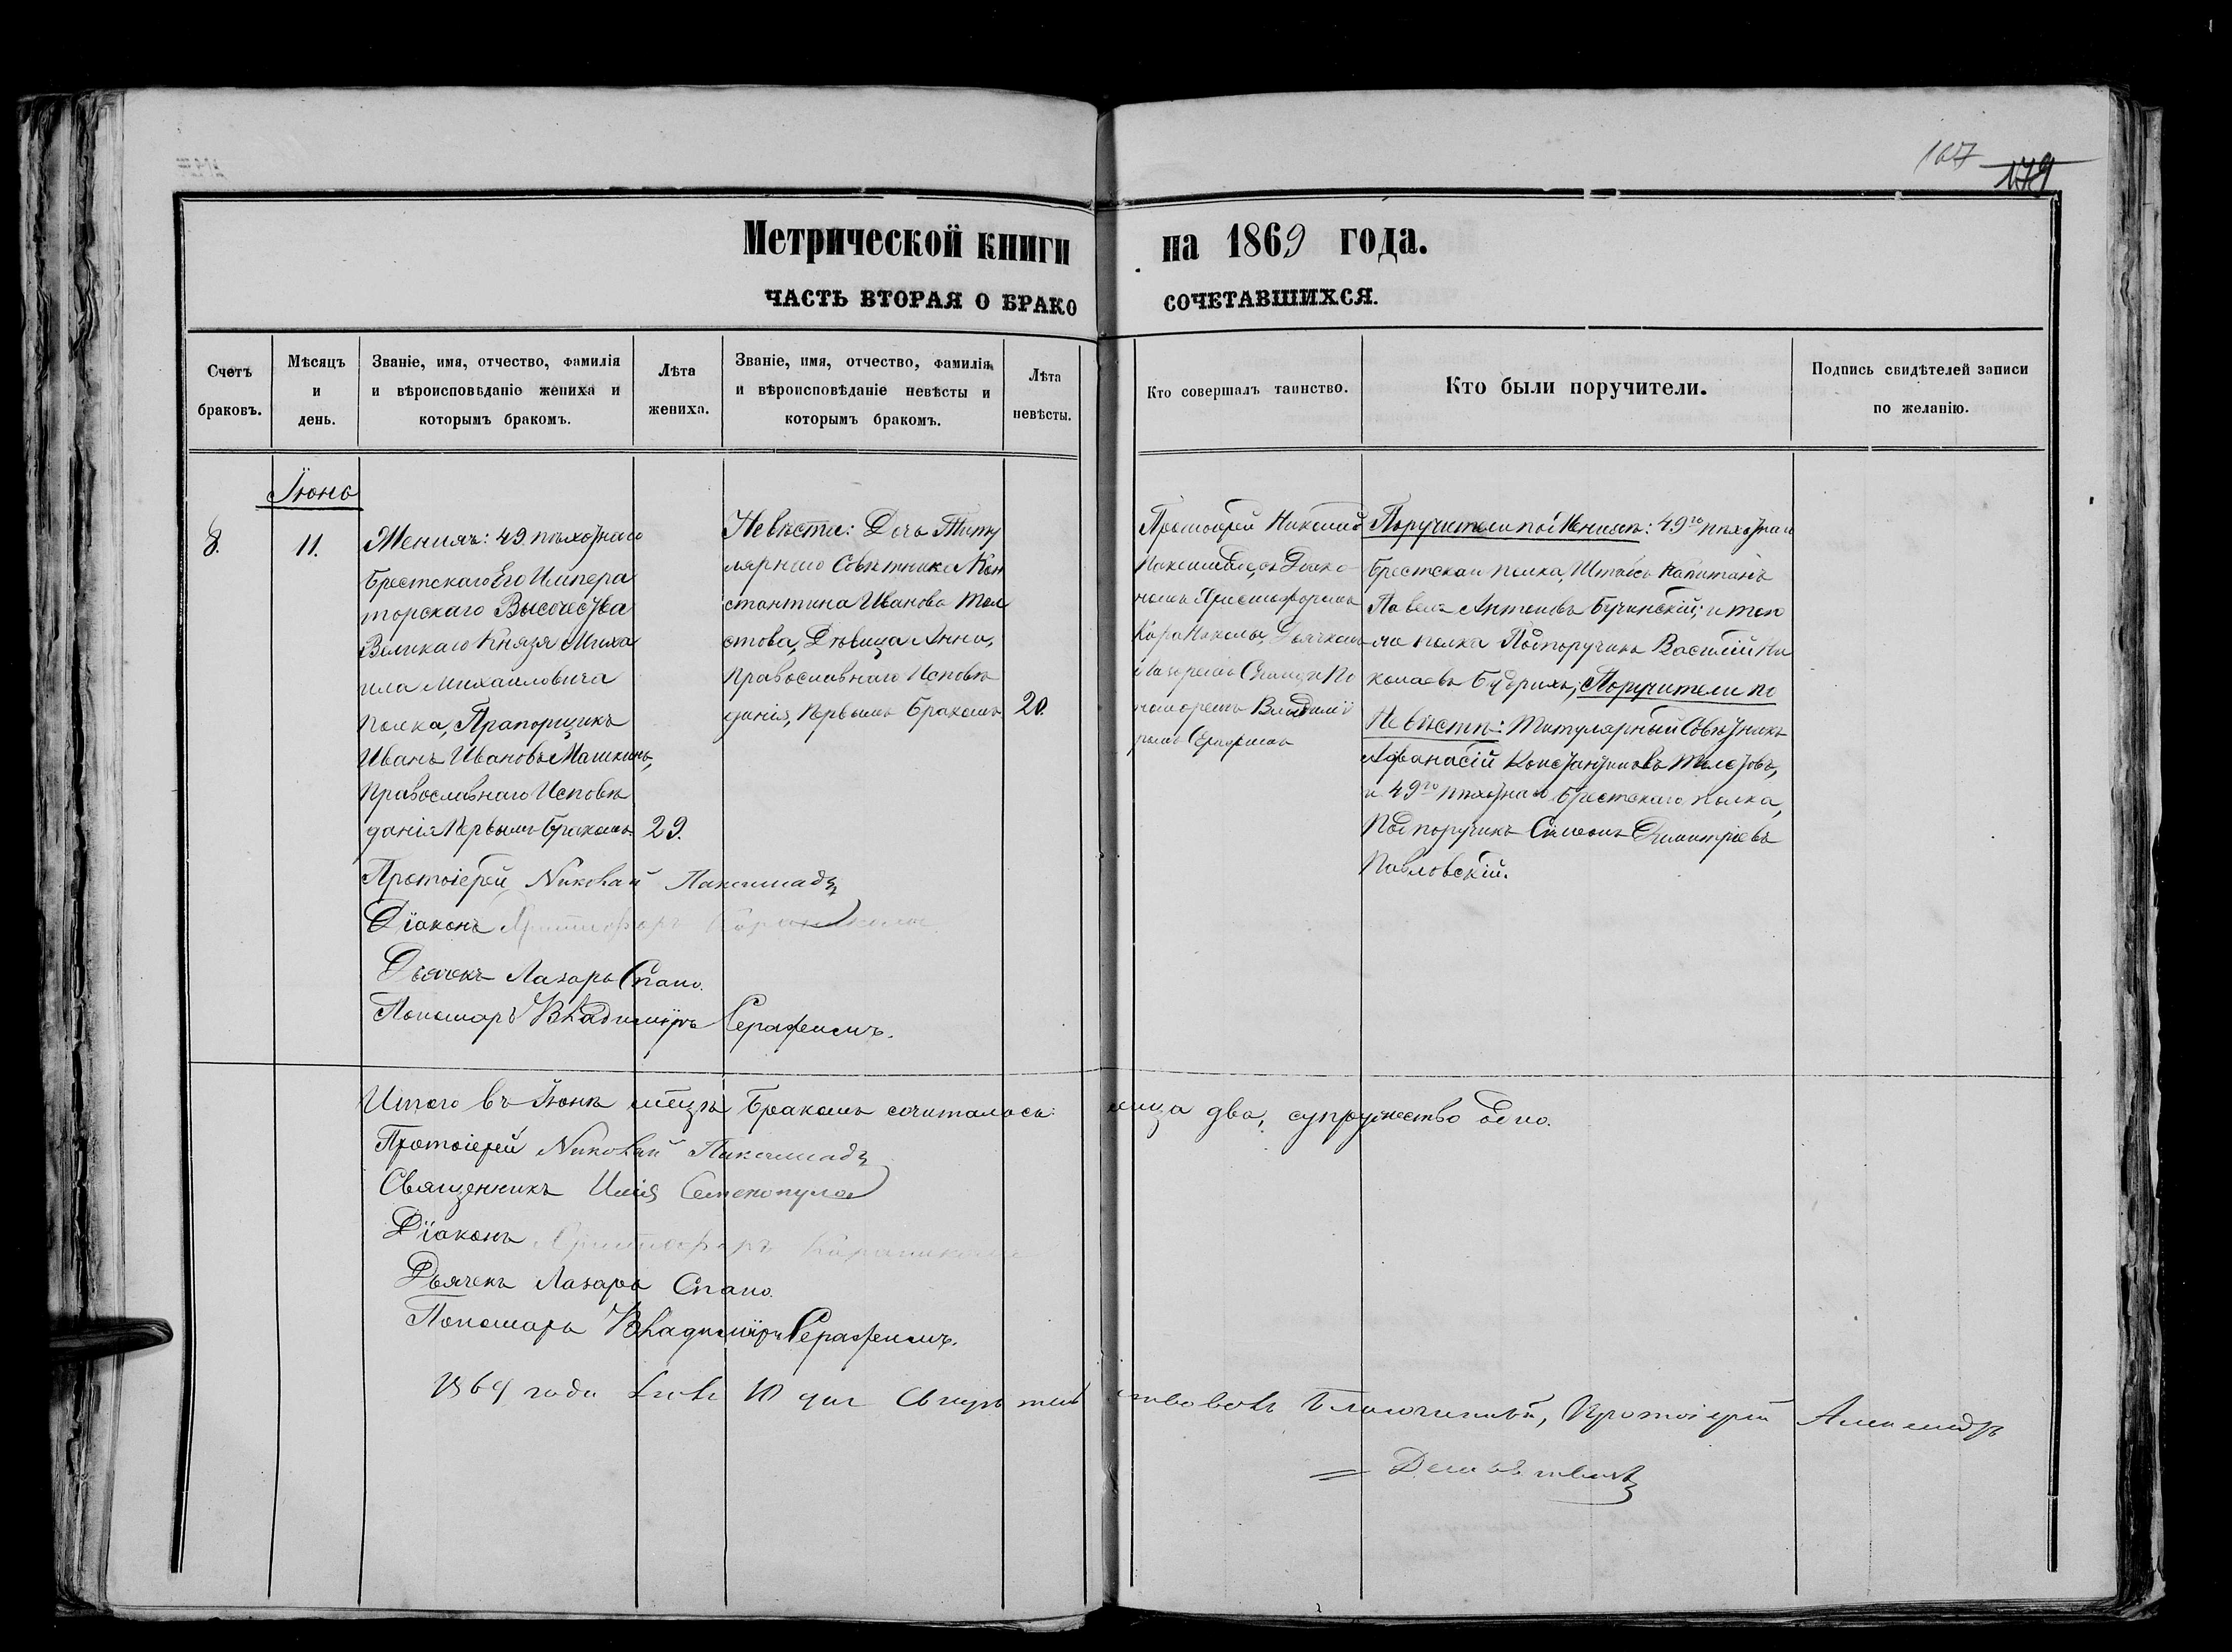 167 179
Метрической книги на 1869 года.
ЧАСТЬ ВТОРАЯ О БРАКО СОЧЕТАВШИХСЯ.
Счетъ
браковъ.
Мѣсяцъ
и
день.
Званіе, имя, отчество, фамилія
и вѣроисповѣданіе жениха и
которымъ бракомъ.
Лѣта
жениха.
Званіе, имя, отчество, фамилія,
и вѣроисповѣданіе невѣсты и
которымъ бракомъ.
Лѣта
невѣсты.
Кто совершалъ таинство.
Кто были поручители.
Подпись свидѣтелей записи
по желанію.
Іюнь
8.
11.
Женихъ: 49. пѣхотнаго
Брестскаго Его Импера
торскаго Высочества
Великаго Князя Миха
ила Михаиловича
полка, Прапорщикъ
Иванъ Ивановъ Машкинъ,
Православнаго Исповѣ
данія Первымъ бракомъ.
29.
Невѣста: Дочь Титу
лярнаго Совѣтника Кон
стантина Иванова Тол
стова, Дѣвица Анна,
Православнаго Исповѣ
данія, Первымъ бракомъ
20.
Протоіерей Николай
съ Діако
номъ Христофоромъ
Караникола, Дьячкомъ
Лазаремъ Спано и По
номаремъ Владимі
ромъ Серафимъ
Поручители по Женихѣ: 49го пѣхотнаго
Брестскаго полка, Штабсъ Капитанъ
Павелъ Антоновъ Бучинскій; и того
же полка Подпоручикъ Василій Ни
колаевъ Будрихъ; Поручители по
Невѣстѣ: Титулярный Совѣтникъ
Афанасій Константиновъ Толстовъ,
и 49го пѣхотнаго Брестскаго полка,
Подпоручикъ Симеонъ Димитріевъ
Павловскій.
Протоіерей Николай
Діаконъ Христофоръ Караникола
Дьячекъ Лазарь Спано.
Пономарь Владиміръ Серафимъ.
Итого въ Іюнѣ мѣсяцѣ бракомъ сочиталось: лица два, супружество одно.
Протоіерей Николай
Священникъ Илія
Діаконъ Христофоръ Караникола
Дьячекъ Лазарь Спано.
Пономарь Владиміръ Серафимъ.
1869 года 10 дня Свидѣтельствовалъ Благочинный, Протоіерей Александръ